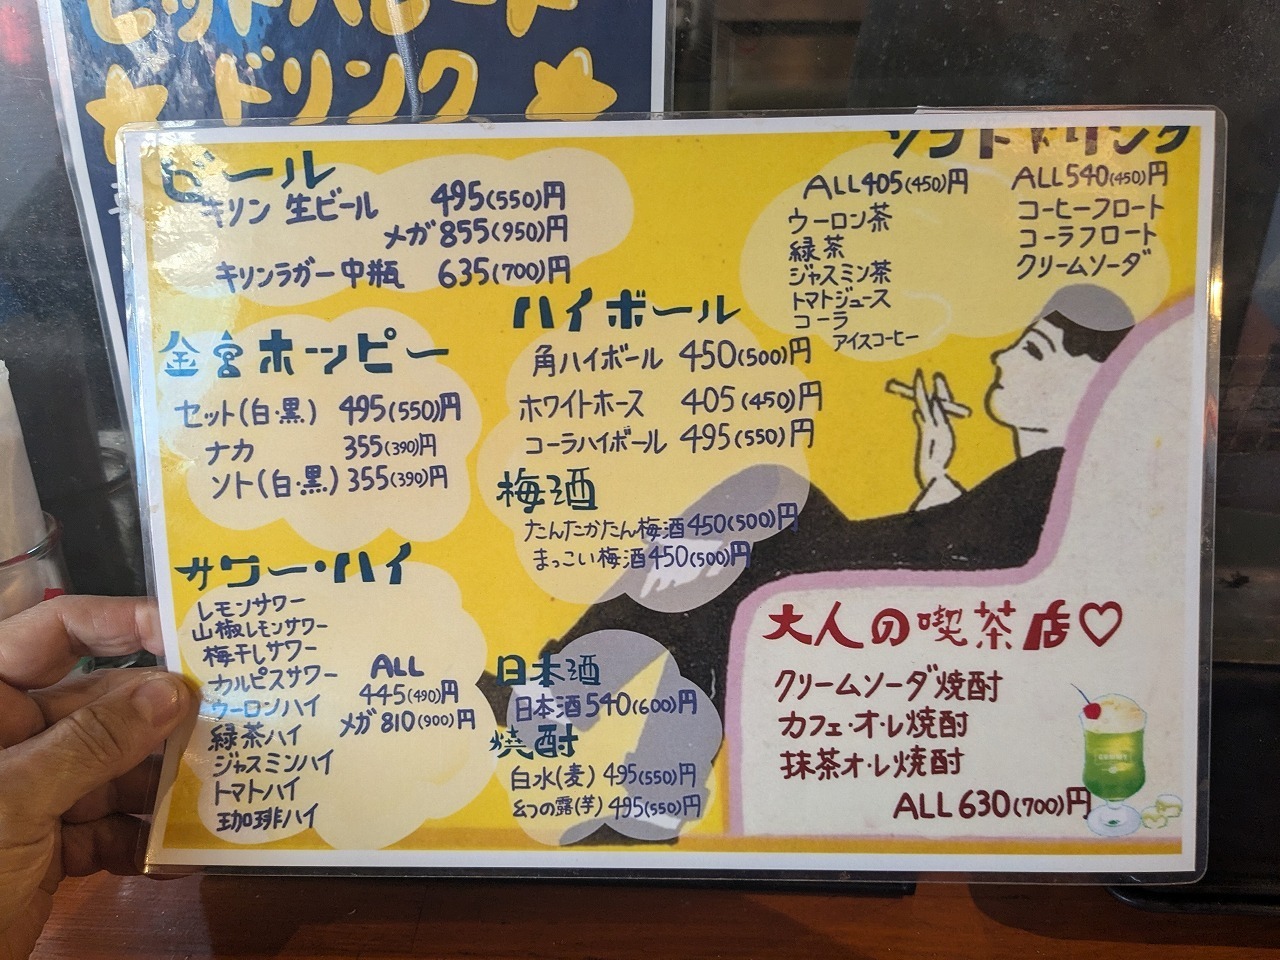 ドリンク
ビール
キリン 生ビール 495(550)円
メガ 855(950)円
キリンラガー中瓶 635(700)円
金宮ホッピー
セット(白・黒) 495(550)円
ナカ 355(390)円
ソト(白・黒) 355(390)円
サワー・ハイ
レモンサワー
山椒レモンサワー
梅干しサワー
カルピスサワー
ウーロンハイ
緑茶ハイ
ジャスミンハイ
トマトハイ
珈琲ハイ
ALL
445(490)円
メガ 810(900)円
ハイボール
角ハイボール 450(500)円
ホワイトホース 405(450)円
コーラハイボール 495(550)円
梅酒
たんたかたん梅酒 450(500)円
まっこい梅酒 450(500)円
日本酒
日本酒 540(600)円
焼酎
白水(麦) 495(550)円
幻の露(芋) 495(550)円
ソフトドリンク
ALL 405(450)円
ウーロン茶
緑茶
ジャスミン茶
トマトジュース
コーラ
アイスコーヒー
ALL 540(450)円
コーヒーフロート
コーラフロート
クリームソーダ
大人の喫茶店♡
クリームソーダ焼酎
カフェ・オ・レ焼酎
抹茶オ・レ焼酎
ALL 630(700)円